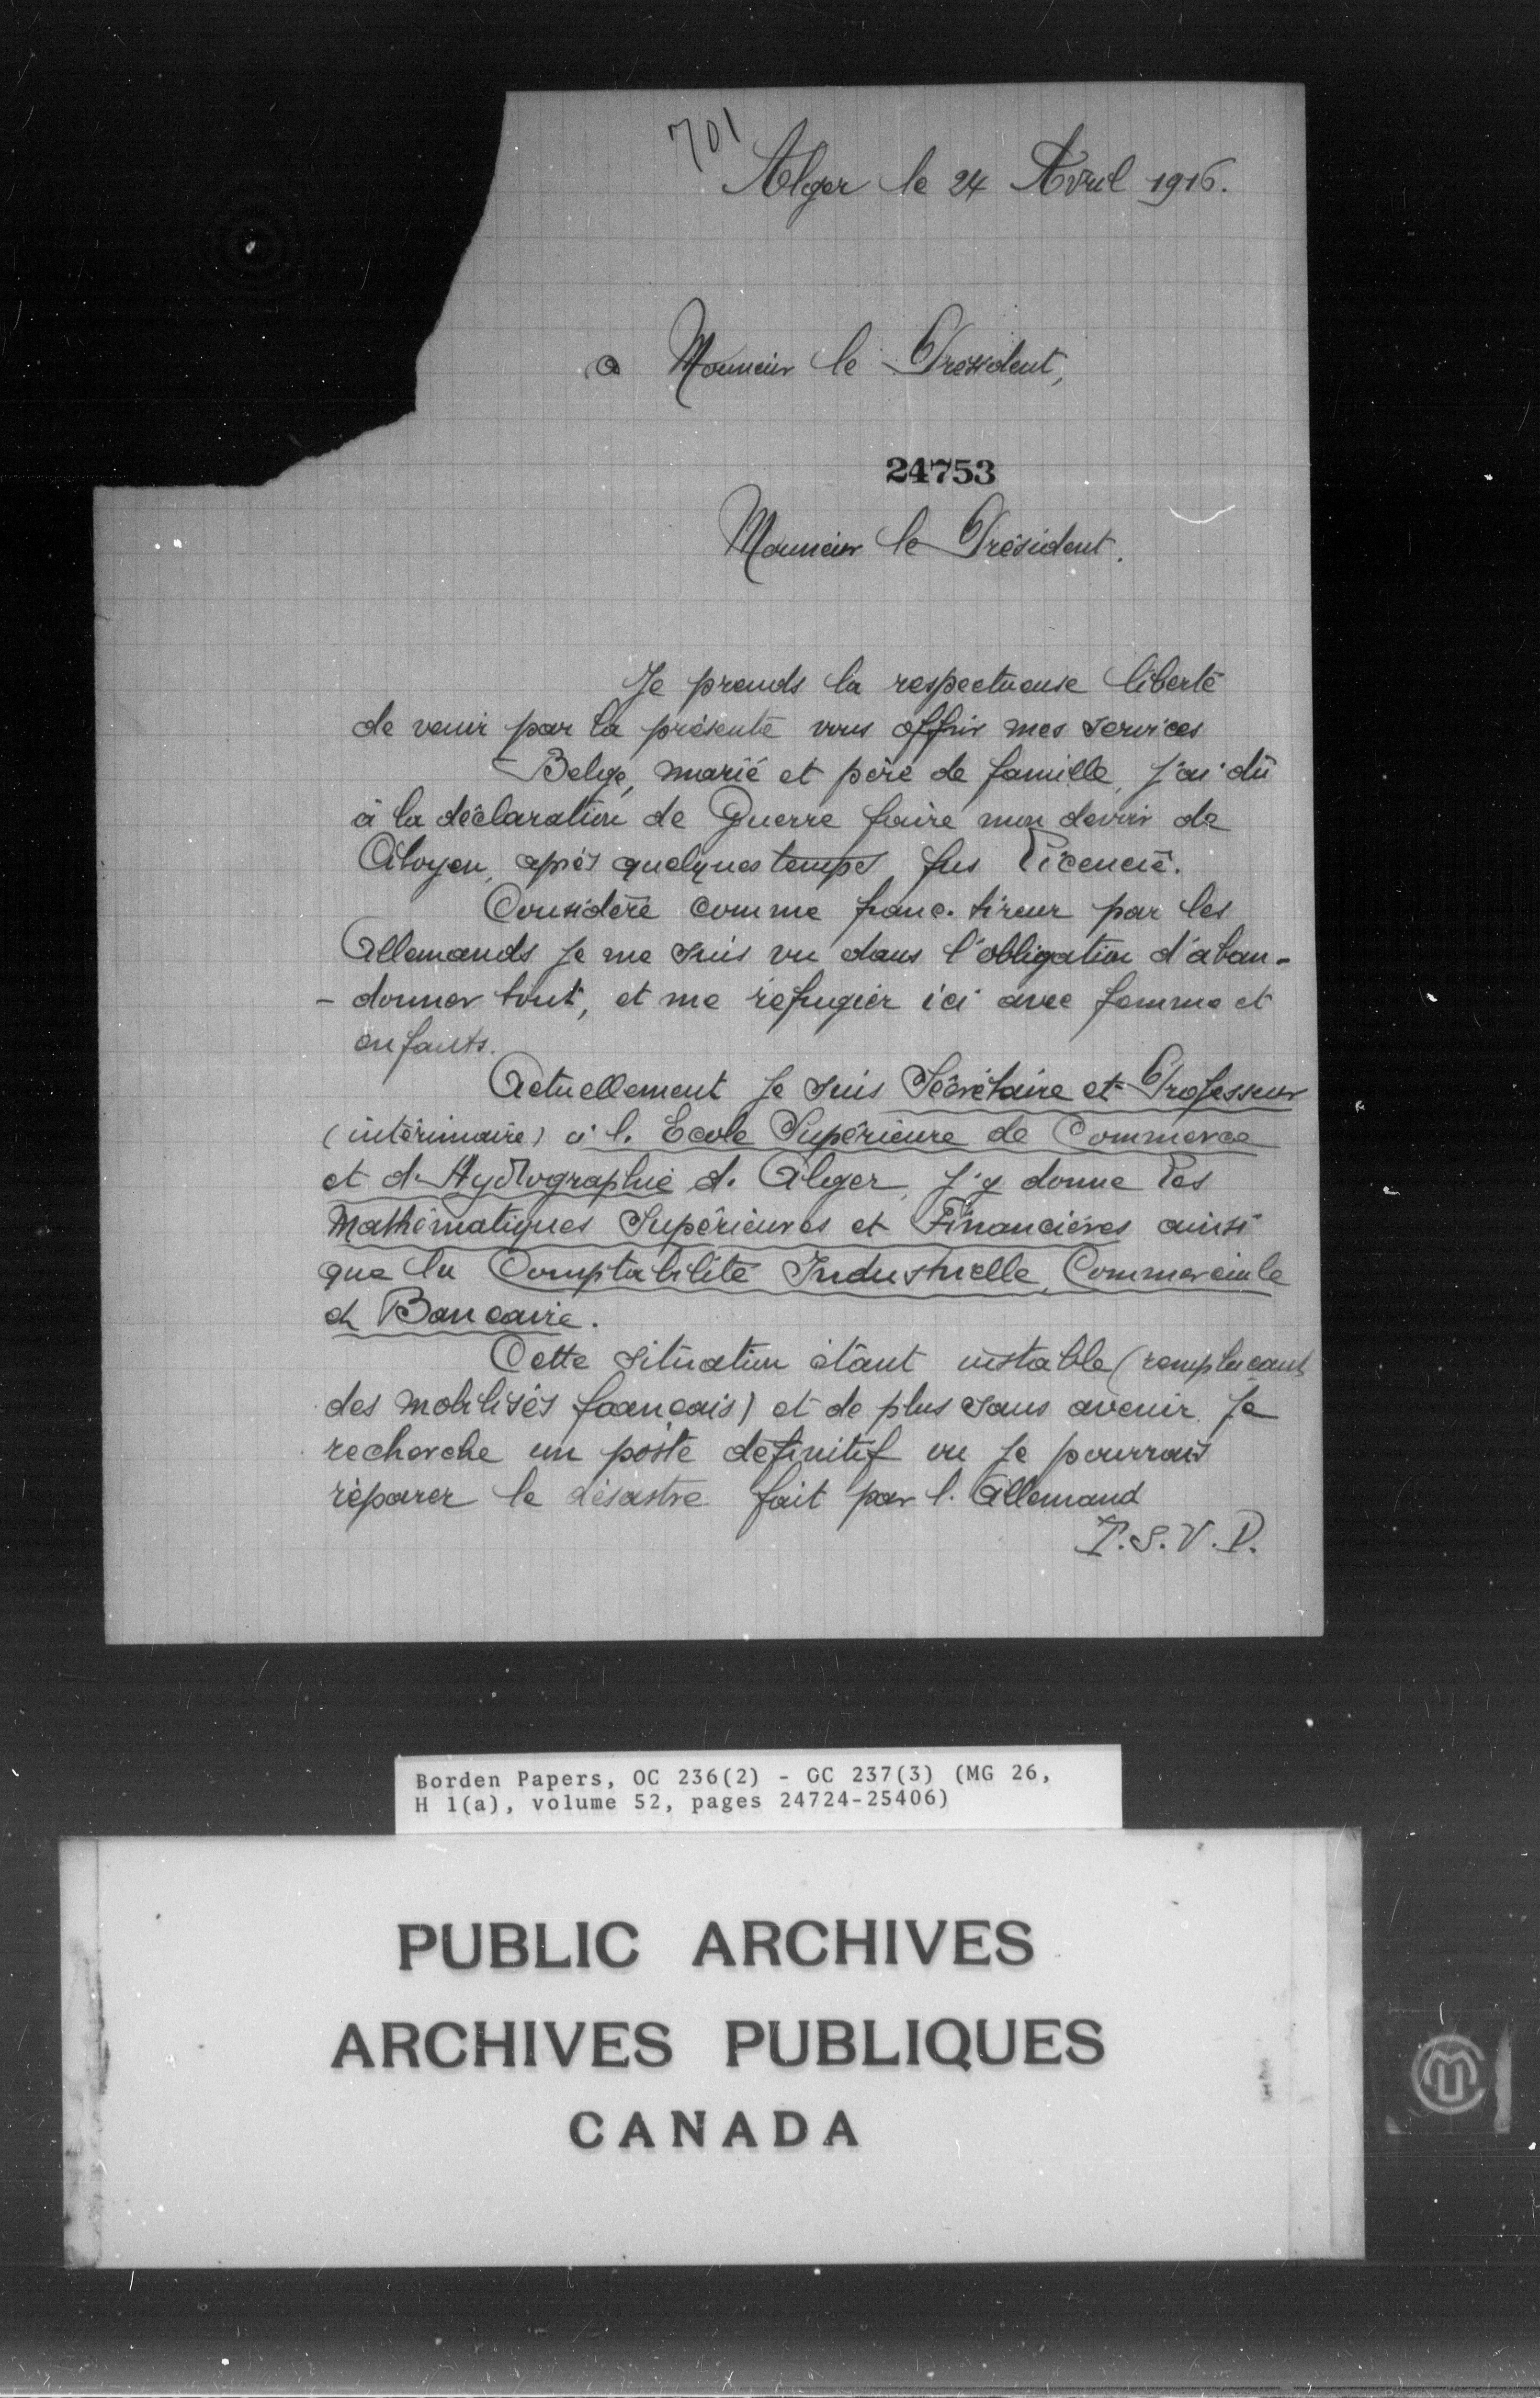 701
Alger le 24 Avril 1916.
a Monsieur le Président,
24753
Monsieur le Président.
Je prends la respectueuse liberté
de venir par la présente vous offrir mes services
Belge, marié et père de famille, j'ai dû
à la déclaration de Guerre faire mon devoir de
Citoyen, après quelques temps fus licencié.
Considéré comme franc-tireur par les
Allemands je me suis vu dans l'obligation d'aban-
- donner tout, et me réfugier ici avec femme et
enfants.
Actuellement je suis Sécrétaire et Professeur
(intérimaire) à l. Ecole Supérieure de Commerce
et d. Hydrographie d. Alger, j'y donne les
Mathématiques Supérieures et Financières ainsi
que la Comptabilité Industrielle, Commerciale
et Bancaire.
Cette situation étant instable (remplacant
des mobilisés français) et de plus sans avenir je
recherche un poste définitif ou je pourrais
réparer le désastre fait par l. Allemand
T.S.V.P.
Borden Papers, OC 236(2) - OC 237(3) (MG 26,
H 1(a), volume 52, pages 24724-25406)
PUBLIC ARCHIVES
ARCHIVES PUBLIQUES
CANADA